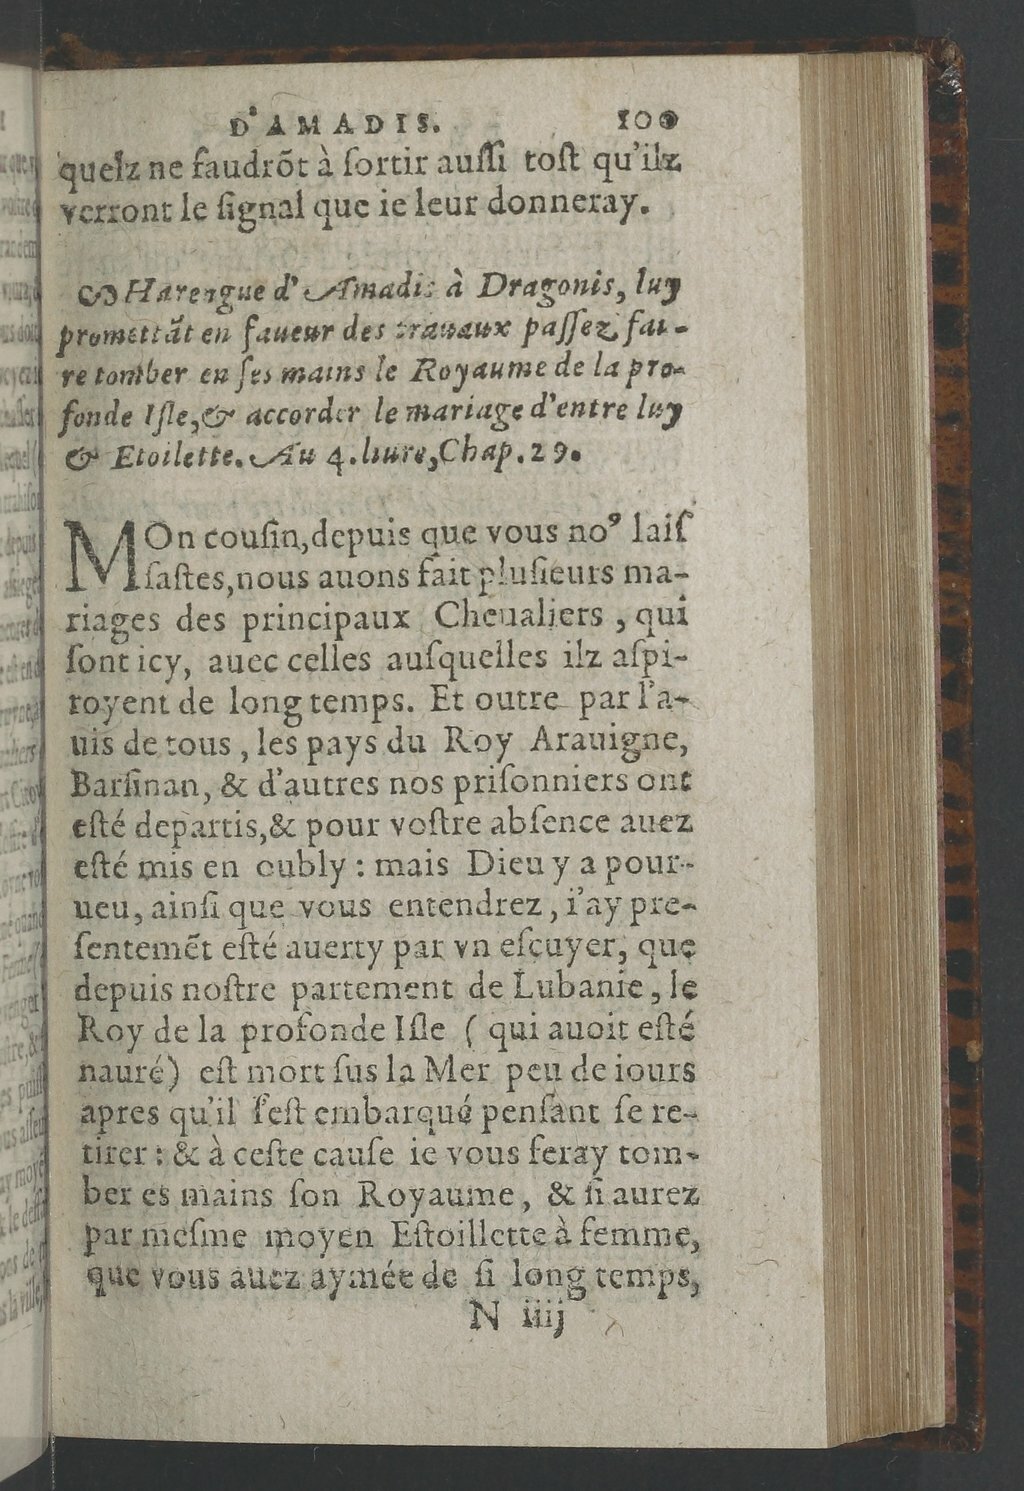 D'AMADIS. 100
quelz ne faudrõt à ſortir auſſi toſt qu'ilz
verront le ſignal que ie leur donneray.
Harengue d'Amadis à Dragonis, luy
promettãt en faueur des trauaux paſſez, fai-
re tomber en ſes mains le Royaume de la pro-
fonde Iſle, & accorder le mariage d'entre luy
& Etoilette. Au 4. liure, Chap. 29.
MOn couſin, depuis que vous noꝰ laiſ
ſaſtes, nous auons fait pluſieurs ma-
riages des principaux Cheualiers, qui
ſont icy, auec celles auſquelles ilz aſpi-
royent de long temps. Et outre par l'a-
uis de tous, les pays du Roy Arauigne,
Barſinan, & d'autres nos priſonniers ont
eſté departis, & pour voſtre abſence auez
eſté mis en oubly : mais Dieu y a pour-
ueu, ainſi que vous entendrez, i'ay pre-
ſentemẽt eſté auerty par vn eſcuyer, que
depuis noſtre partement de Lubanie, le
Roy de la profonde Iſle ( qui auoit eſté
nauré) eſt mort ſus la Mer peu de iours
apres qu'il ſ'eſt embarqué penſant ſe re-
tirer : & à ceſte cauſe ie vous feray tom-
ber es mains ſon Royaume, & ſi aurez
par meſme moyen Eſtoillette à femme,
que vous auez aymée de ſi long temps,
N iiij